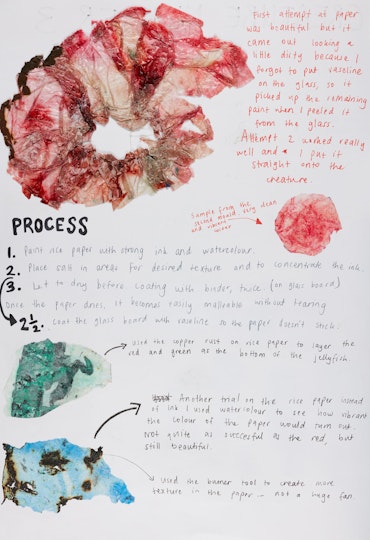 First attempt at paper
was beautiful but it
came out looking a
little dirty because I
forgot to put vaseline
on the glass, so it
picked up the remaining
paint when I peeled it
from the glass.
Attempt 2 worked really
well and I put it
straight onto the
creature.
Sample from the
second mould. very clean
and vibrant
PROCESS
1. Paint rice paper with strong ink and watercolour.
2. Place salt in areas for desired texture and to concentrate the ink.
3. Let to dry before coating with binder, twice. (on glass board)
Once the paper dries, it becomes easily malleable without tearing
2½. Coat the glass board with vaseline so the paper doesn't stick.
Used the copper rust on rice paper to layer the
red and green as the bottom of the jellyfish.
Another trial on the rice paper instead
of ink I used watercolour to see how vibrant
the colour of the paper would turn out.
Not quite as succesful as the red, but
still beautiful.
Used the burner tool to create more
texture in the paper - not a huge fan.